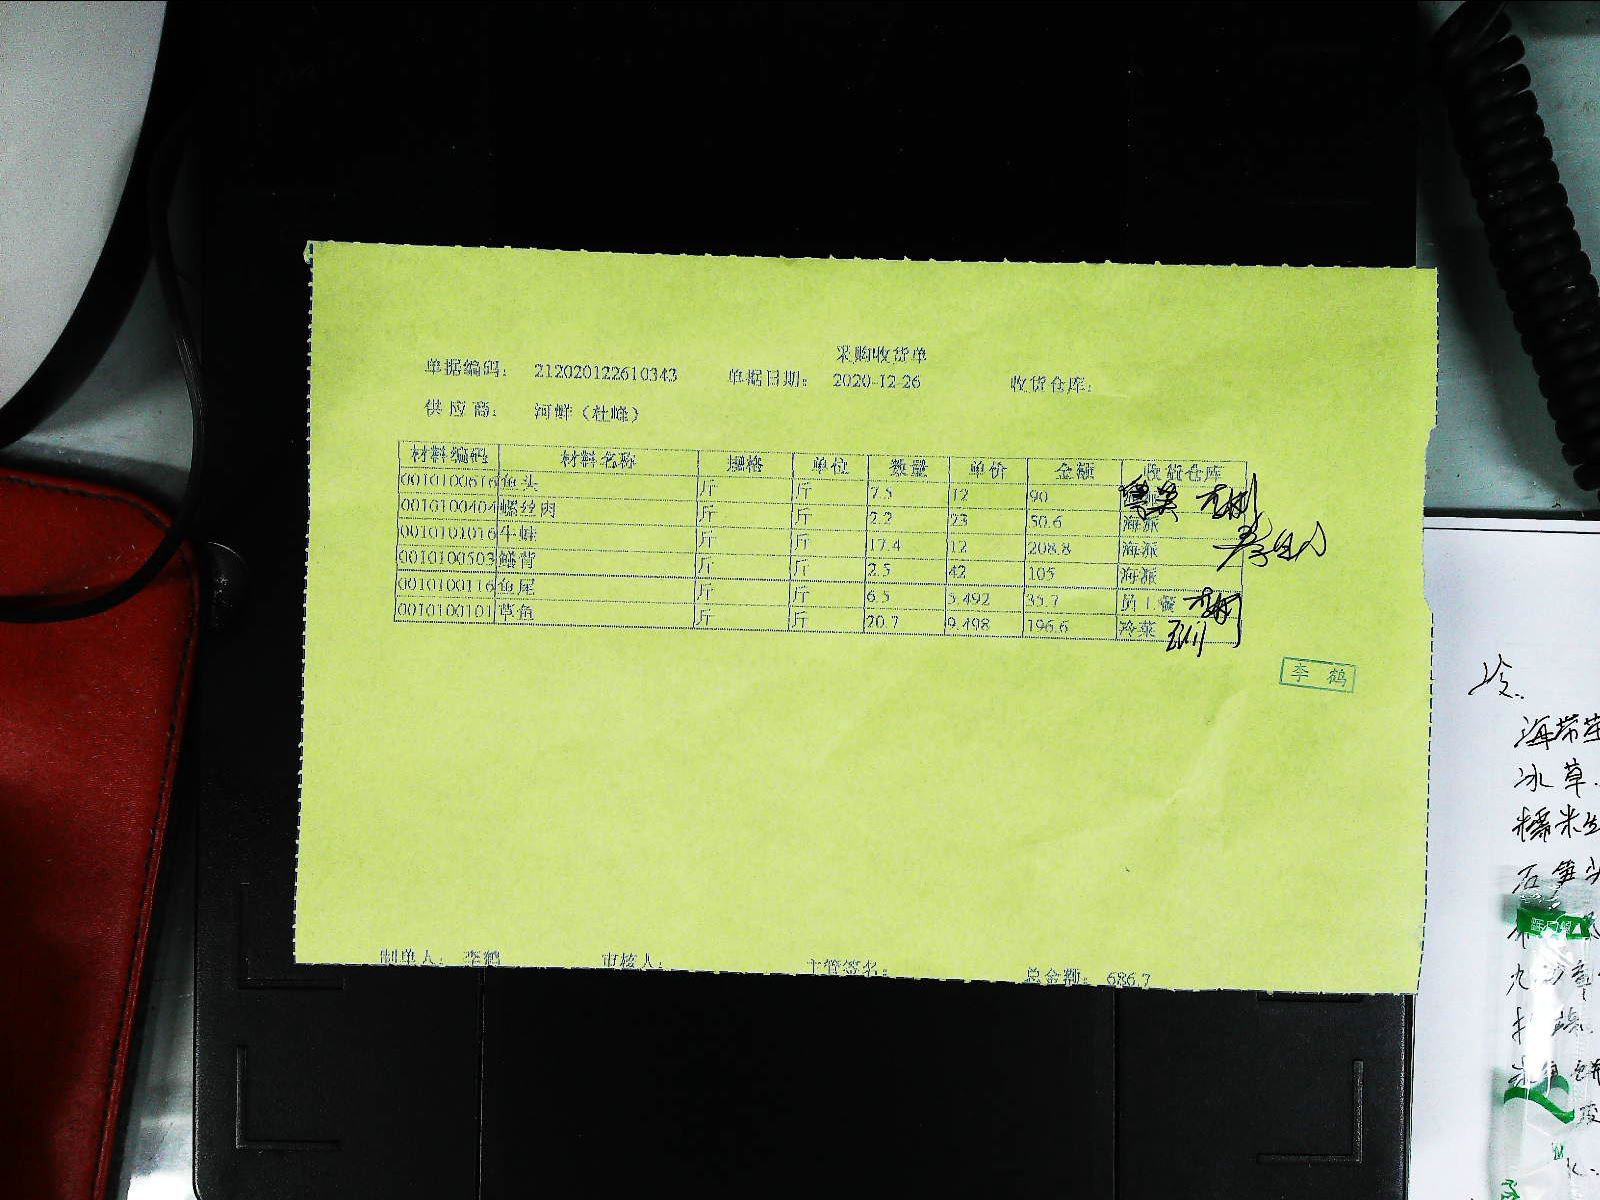 采购收货单
单据编码： 212020122610343 单据日期： 2020-12-26 收货仓库：
供应商： 河鲜（杜峰）
材料编码 材料名称 规格 单位 数量 单价 金额 收货仓库
0010100616 鱼头 斤 斤 7.5 12 90
0010100404 螺丝肉 斤 斤 2.2 23 50.6 海派
0010101016 牛蛙 斤 斤 17.4 12 208.8 海派
0010100503 鳝背 斤 斤 2.5 42 105 海派
0010100116 鱼尾 斤 斤 6.5 5.492 35.7 员工餐
0010100101 草鱼 斤 斤 20.7 9.498 196.6 冷菜
李鹤
制单人： 李鹤 审核人： 主管签名： 总金额： 686.7
冷
海带
冰草
糯米
石笋